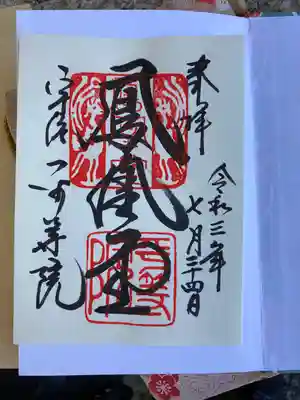 奉拝
令和三年
七月二十四日
鳳凰堂
宇治
平等院